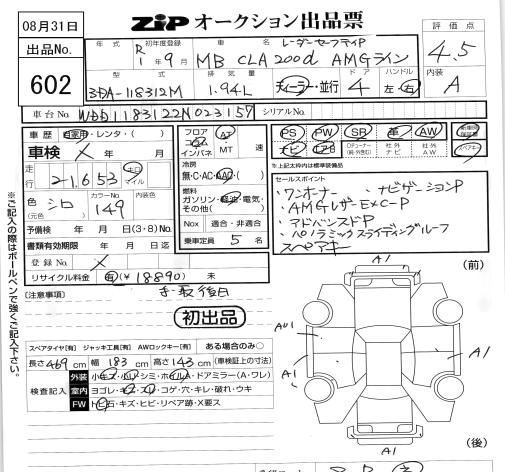 08月31日
ZIP オークション出品票
出品No.
602
年式 初年度登録 車名 ドア ハンドル 評価点
R 1年9月 MB CLA200d AMGライン
レーダーセーフティP
4.5
型式 排気量 ディーラー・並行 左・右 内装
3DA-118312M 1.94L 4 A
車台No. WDD1183122N023157 シリアルNo.
車歴 自家用・レンタ・( )
車検 X 年 月
走行 21,653 キロ マイル
色 シロ (元色) カラーNo. 149 内装色
予備検 年 月 日(3・8)No.
書類有効期限 年 月 日
登録No. X
リサイクル料金 有(¥18890) 未
フロア コラム インパネ AT MT 速
冷房 無・C・AC・AAC( )
燃料 ガソリン・軽油・電気・その他( )
Nox 適合・非適合
乗車定員 5 名
PS PW SR 革 AW 新車時保証書
ナビ TV 社外ナビ 社外AW スペアキー
※上記太枠内は標準装備品
セールスポイント
・ワンオーナー ・ナビゲーションP
・AMGレザーEXC-P
・アドバンスドP
・パノラミックスライディングルーフ
スペアキー
[注意事項]
初出品
スペアタイヤ[有] ジャッキ工具[有] AWロックキー[有] ある場合のみ○
長さ469cm 幅183cm 高さ143cm (車検証上の寸法)
検査記入
外装 小キズ・小凹・シミ・ホイルA・ドアミラー(A・ワレ)
室内 ヨゴレ・キズ・スレ・コゲ・穴・キレ・破れ・ウキ
FW トビ石・キズ・ヒビ・リペア跡・X要ス
※ご記入の際はボールペンで強くご記入下さい。
A1
(前)
AU1
A1
A1
A1
(後)